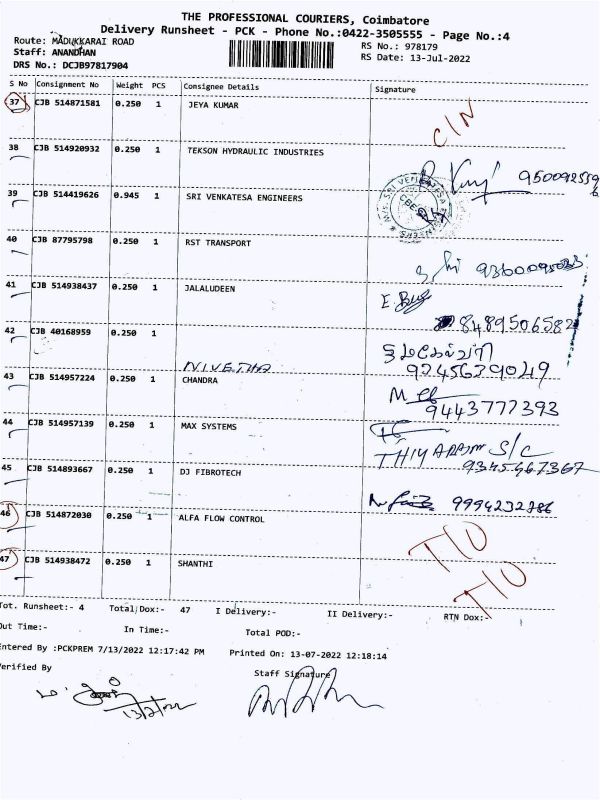 THE PROFESSIONAL COURIERS, Coimbatore
Delivery Runsheet - PCK - Phone No.:0422-3505555 - Page No.:4
Route: MADUKKARAI ROAD
RS No.: 978179
Staff: ANANDHAN
RS Date: 13-Jul-2022
DRS No.: DCJB97817904
S No Consignment No Weight PCS Consignee Details Signature
37 CJB 514871581 0.250 1 JEYA KUMAR
C/N
38 CJB 514920932 0.250 1 TEKSON HYDRAULIC INDUSTRIES
39 CJB 514419626 0.945 1 SRI VENKATESA ENGINEERS
40 CJB 87795798 0.250 1 RST TRANSPORT
9360095033
41 CJB 514938437 0.250 1 JALALUDEEN
8489506582
42 CJB 40168959 0.250 1
NIVETHA
43 CJB 514957224 0.250 1 CHANDRA
9443777393
44 CJB 514957139 0.250 1 MAX SYSTEMS
S/C
45 CJB 514893667 0.250 1 DJ FIBROTECH
46 CJB 514872030 0.250 1 ALFA FLOW CONTROL
T/O
47 CJB 514938472 0.250 1 SHANTHI
T/O
Tot. Runsheet:- 4 Total Dox:- 47 I Delivery:- II Delivery:- RTN Dox:-
Out Time:- In Time:- Total POD:-
Entered By :PCKPREM 7/13/2022 12:17:42 PM Printed On: 13-07-2022 12:18:14
Verified By Staff Signature